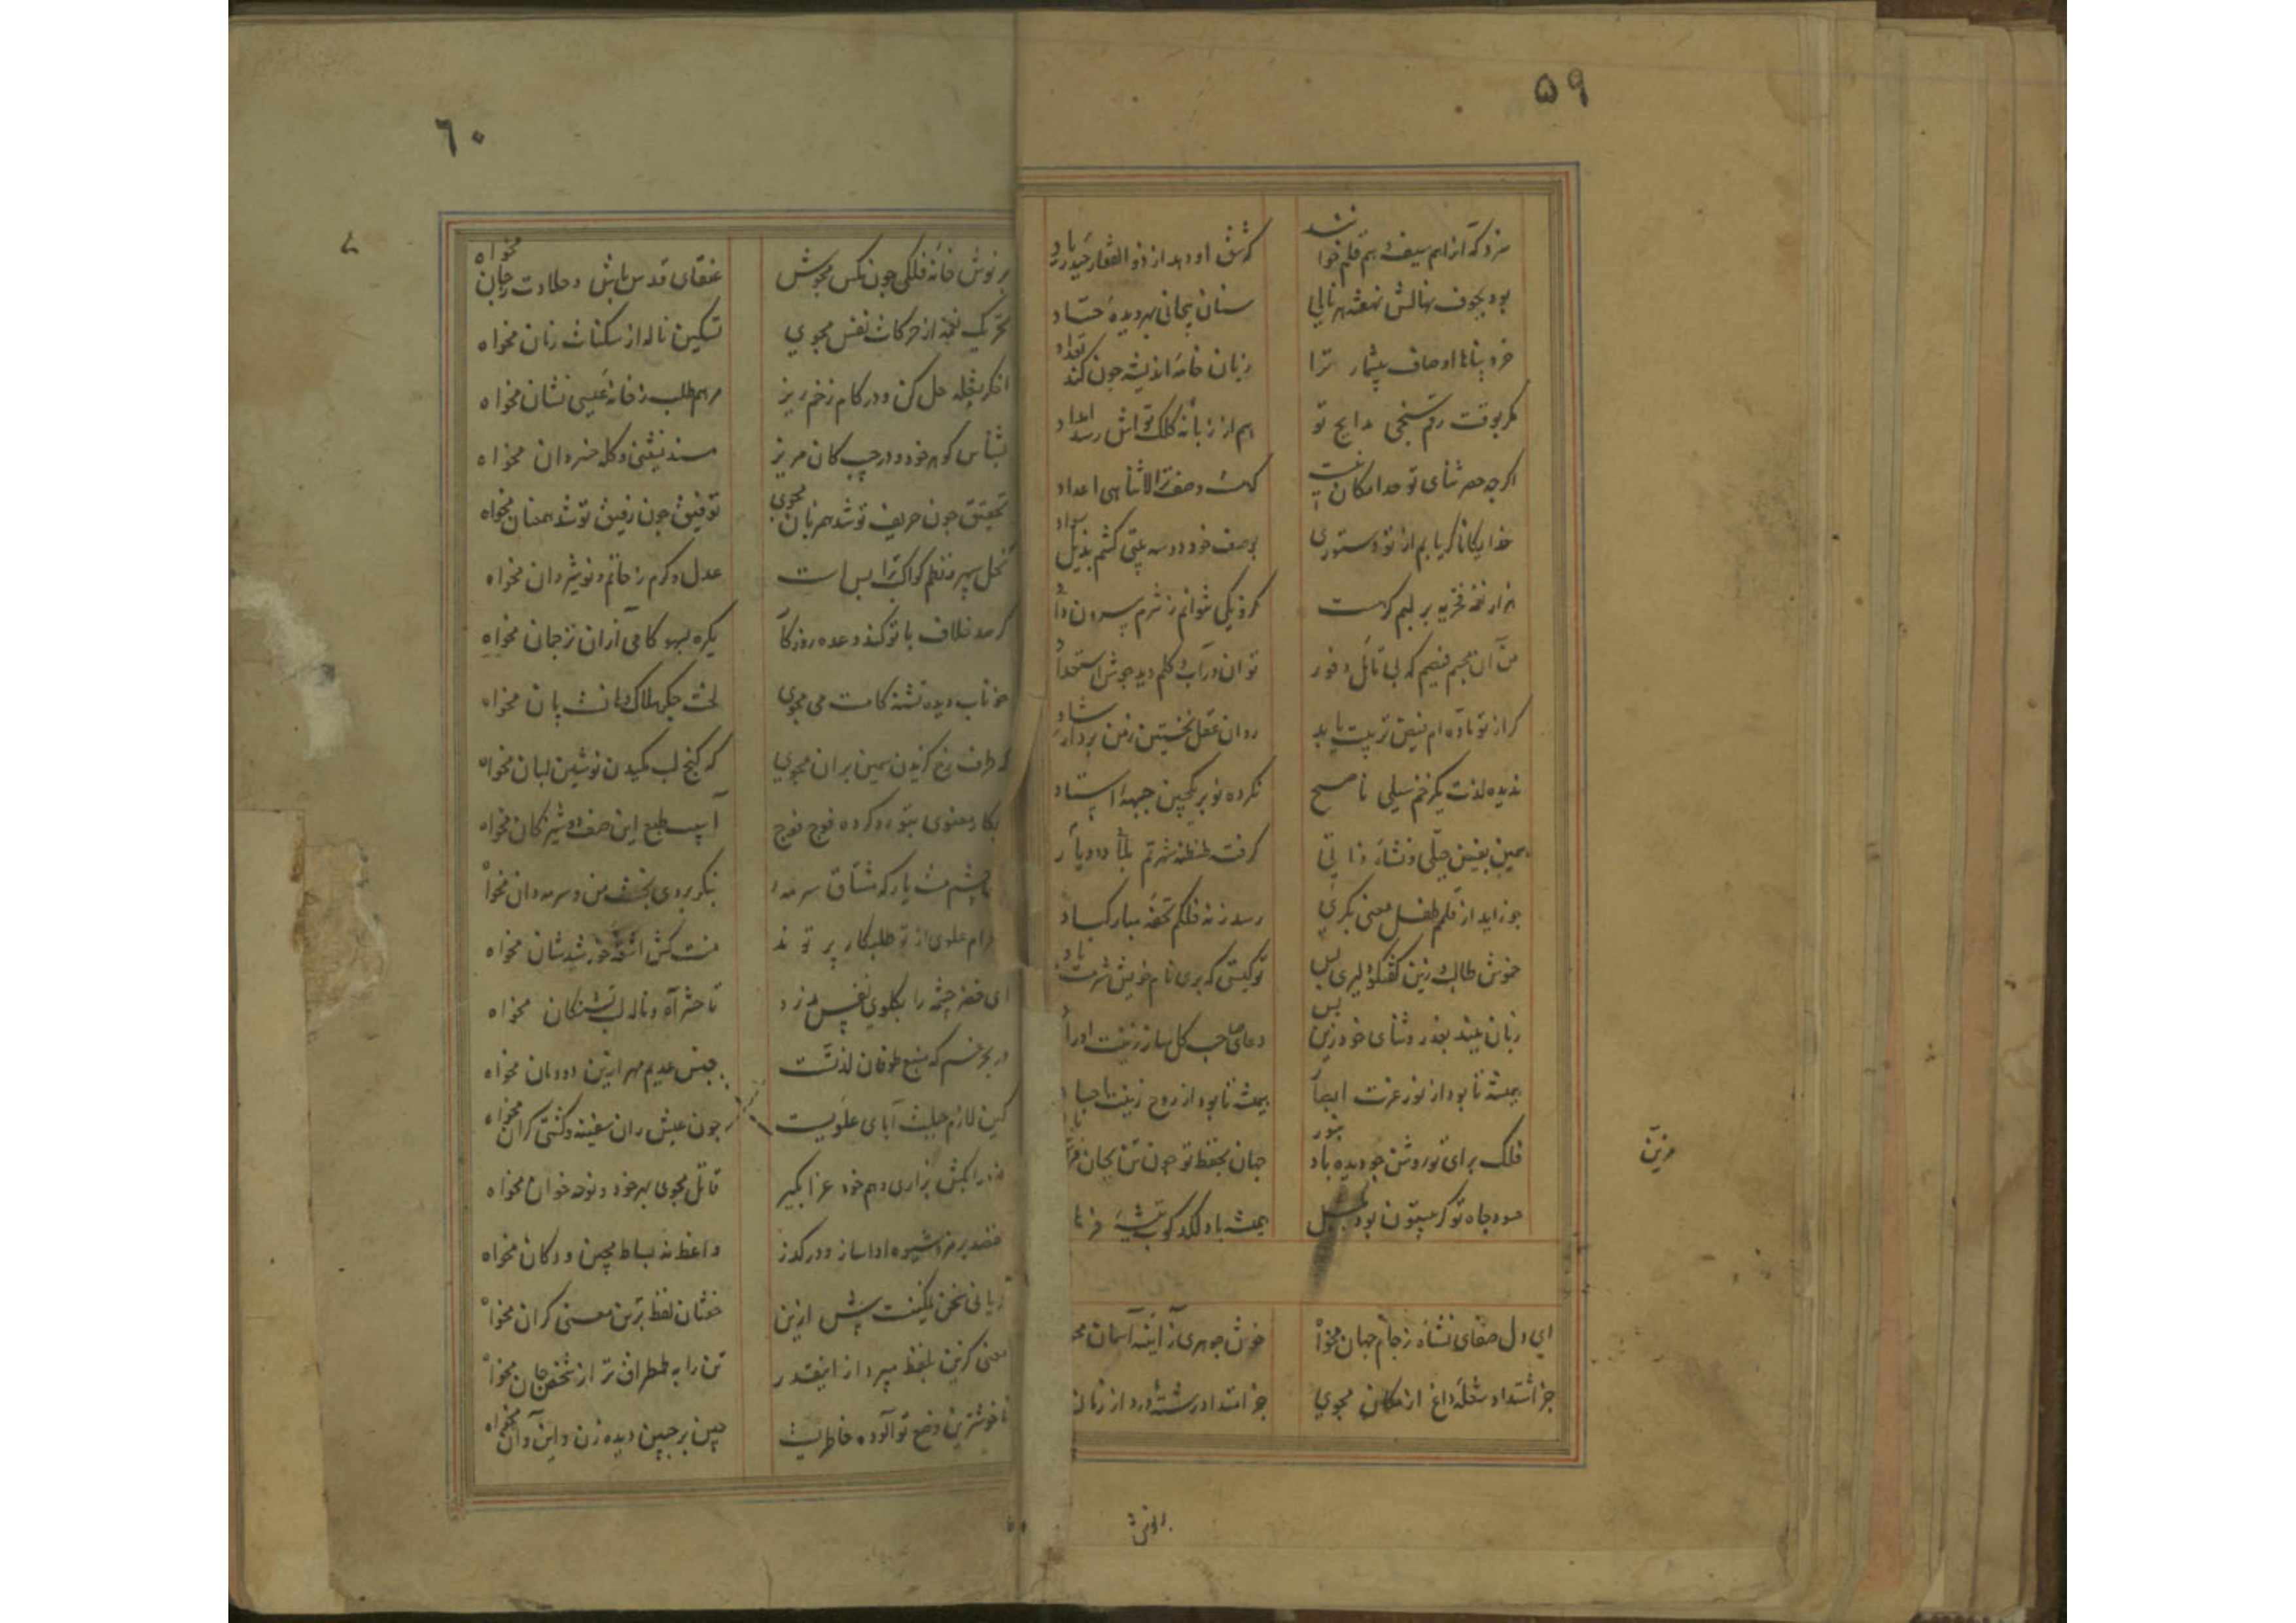 ۵۹
سزد که از اهم سیف هم قلم خوانند
که شق او دهد از ذوالفقار حیدر یاد
بود بجوف نهالش نهفته هر نالی
سنان بجانی بهر دیده حساد
خرد پناها اوصاف بیشمار ترا
زبان خامه اندیشه چون کند تعداد
مگر بوقت رقم سنجی مدایح تو
هم از زبانه کلک تواش رسد امداد
اگرچه حصر ثنای تو حد امکان نیست
که هست وصف ترا لاتناهی اعداد
خدایگانا گر یابم از تو دستوری
بوصف خود دو سه بیتی کشم بذیل سواد
هزار نغمه فخریه بر لبم گرهست
که دیکی نتوانم ز شرم بیرون داد
من آن مجسم فیضم که بی تأمل و فور
توان در آب و گلم دید جوش استعداد
گر از تو ماده ام فیض تربیت یابد
روان عقل نخستین ز من برد ارشاد
ندیده لذت یک زخم سیلی ناصح
نکرده نو بر یک چین جبهه استاد
همین بفیض جبلی و نشاء ذاتی
گرفت طنطنه شهرتم بلاد و دیار
چو زاید از قلمم طفل معنی بکری
رسد ز نه فلکم تحفه مبارکباد
خموش طالب زین گفتگو دلیری بس
تو کیستی که بری نام خویش شرمت باد
زبان ببند بعذر و ثنای خود زین بس
دعای صاحب کل ساز زینت اوراد
همیشه تا بود از نور عزت ابصار
همیشه تا بود از روح زینت اجساد
فلک برای تو روشن چو دیده باد بنور
جهان بحفظ تو چون تن بجان
حسود جاه تو گر بیستون بود بمثل
همیشه باد لگدکوب تیشه فرهاد
مزین
ای دل صفای نشاه ز جام جهان مخواه
خوش جوهری ز آینه آسمان مخواه
جز اشتداد شعله داغ از مکان مجوی
جز امتداد رشته درد از زمان
برنوش
۶۰
بر نوش خانه فلکی چون مگس مجوش
عنقای قدس باش و حلاوت ز جان مخواه
تحریک نغمه از حرکات نفس مجوی
تسکین ناله از سکنات زبان مخواه
اخگر بشعله حل کن و در کام زخم ریز
مرهم طلب ز خانه عیسی نشان مخواه
بشناس گوهر خود و در جیب کان مریز
مسند نشینی و کله خسروان مخواه
تحقیق چون حریف تو شد همزبان مجوی
توفیق چون رفیق تو شد همعنان مخواه
کحل سپهر و نظم کواکب ترا بس است
عدل و کرم ز حاتم و نوشیروان مخواه
گر صد خلاف با تو کند وعده روزگار
یکره بسهو کامی از آن ترجمان مخواه
خوناب دیده تشنه کامت می مجوی
لخت جگر هلاک دهانت نان مخواه
که طرف رخ گزیدن سیمین بران مجوی
که کنج لب مکیدن نوشین لبان مخواه
ابکار معنوی بتو رو کرده فوج فوج
آسیب طبع این صف دوشیزگان مخواه
چشم یار که مشتاق سرمه
بنگر بروی بخت من و سرمه دان مخواه
اجرام علوی از تو طلبکار پرتوند
منت کش اشعه خورشیدشان مخواه
ای خضر چشمه را بگلوی نفس بدزد
تا حشر آه و ناله لب تشنگان مخواه
در بحر غم که منبع طوفان لذتست
جنس عدیم مهر ازین دودمان مخواه
کین لازم جبلت آبای علویست
چون عیش ران سفینه و کشتی کران مخواه
خود را بکش بزاری و هم خود عزا بگیر
قاتل مجوی بهر خود و نوحه خوان مخواه
قصد بر مز و شیوه ادا ساز و درگذر
واعظ نه بساط مچین و دکان مخواه
عریانی سخن نمکینست پیش ازین
خفتان لفظ بر تن معنی گران مخواه
معنی گزین بلفظ مپرداز اینقدر
تن را به طمطراق تر از شخص جان مخواه
ناخوشترین وضع تو آلوده خاطریست
چین بر جبین دیده زن و این و آن مخواه